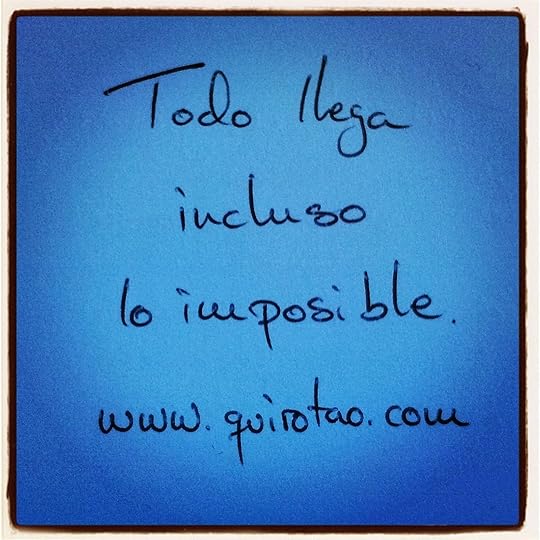 Todo llega
incluso
lo imposible.
www.quirotao.com